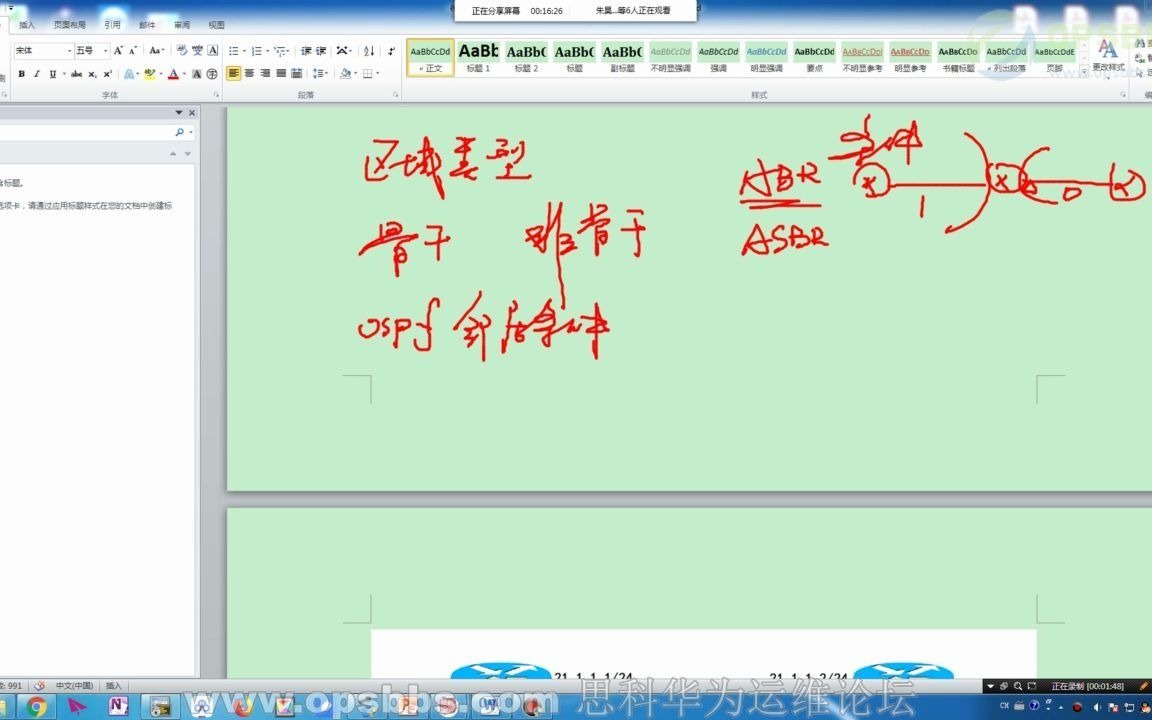 正在分享屏幕 00:16:26 朱昊...等6人正在观看
插入 页面布局 引用 邮件 审阅 视图
宋体 五号
AaBbCcDd AaBb AaBbC AaBbC AaBbC AaBbCcDd AaBbCcDd AaBbCcDd AaBbCcDd AaBbCcDd AaBbCcDd AaBbCcDd AaBbCcDd AaBbCcDdE
正文 标题 1 标题 2 标题 副标题 不明显强调 强调 明显强调 要点 不明显参考 明显参考 书籍标题 列出段落 页脚 更改样式
字体 段落 样式
www.opsbbs.com
选项卡，请通过应用标题样式在您的文档中创建标
区域类型
骨干 非骨干
ospf 邻居
ABR
ASBR
1 0
21.1.1.1/24 21.1.1.2/24
991 中文(中国) 插入
正在录制 [00:01:48]
www.opsbbs.com 思科华为运维论坛